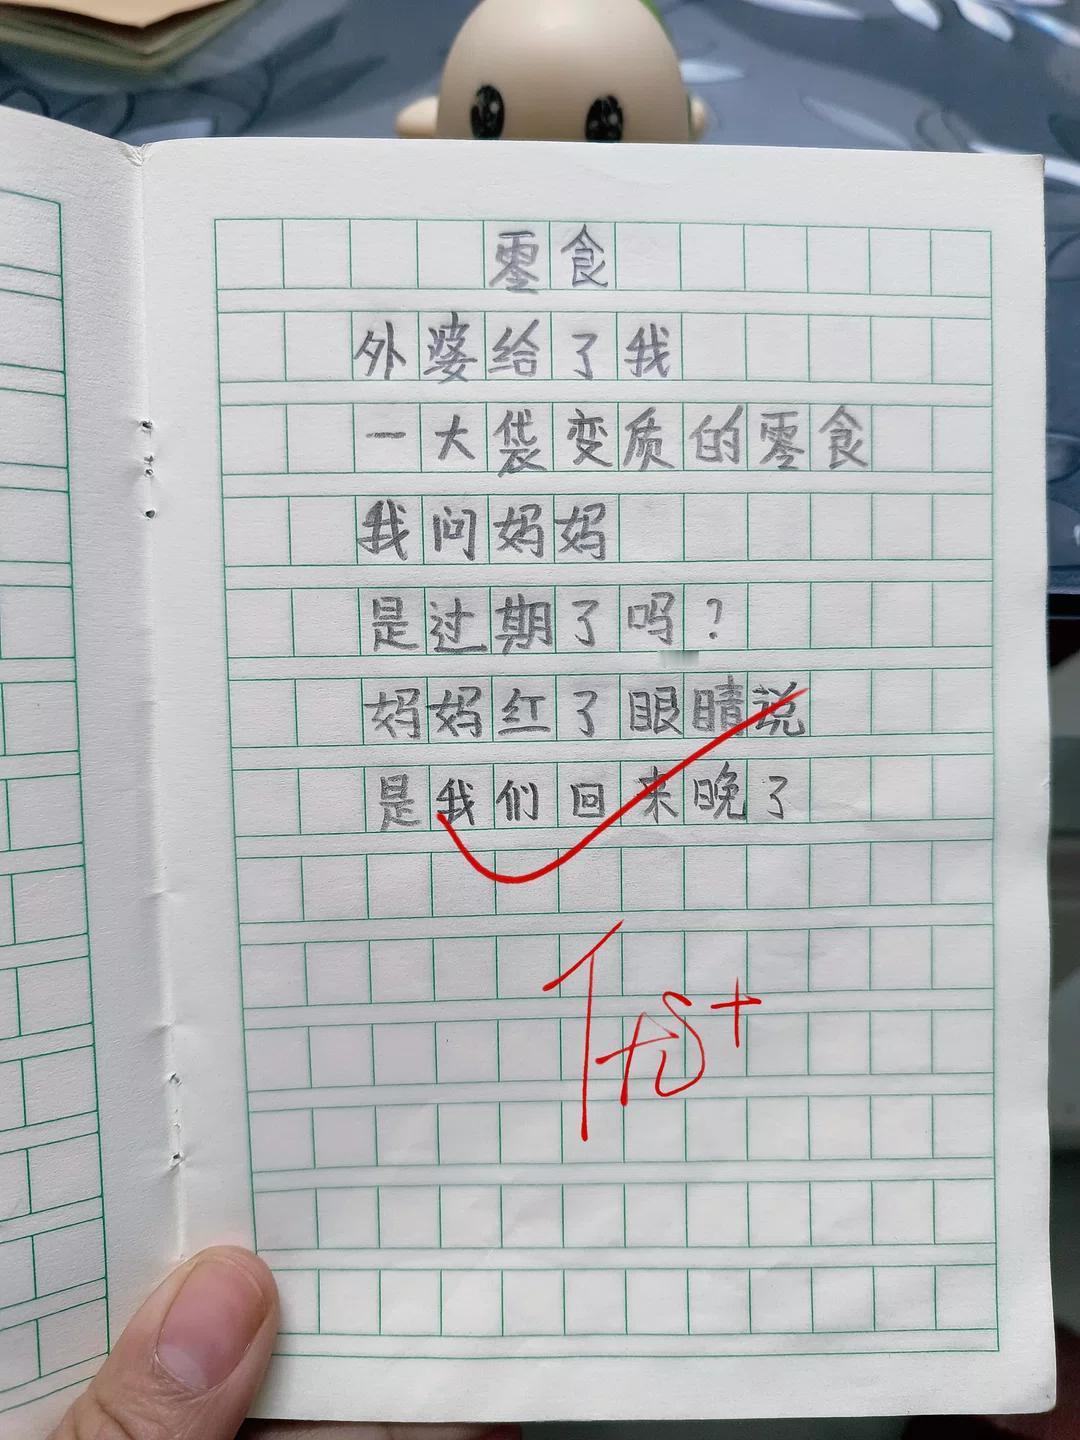 零食
外婆给了我
一大袋变质的零食
我问妈妈
是过期了吗？
妈妈红了眼睛说
是我们回来晚了